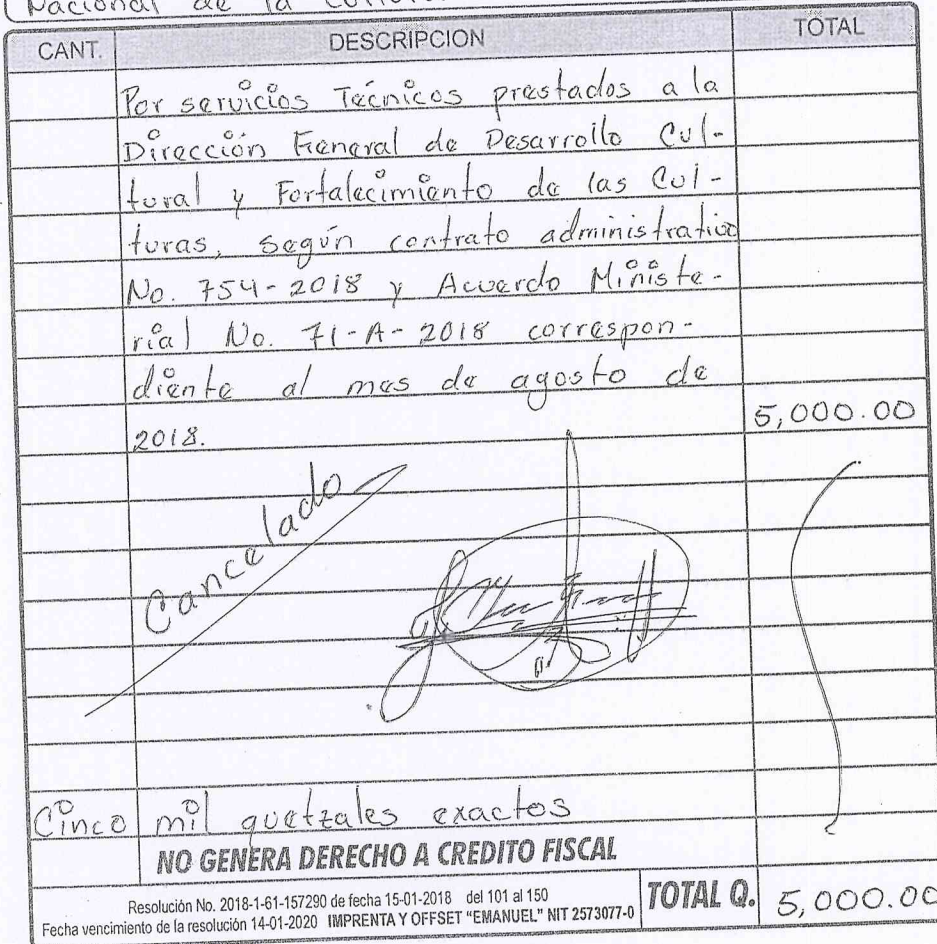 Nacional de la
CANT. DESCRIPCION TOTAL
Por servicios Técnicos prestados a la
Dirección General de Desarrollo Cul-
tural y Fortalecimiento de las Cul-
turas, según contrato administrativo
No. 754-2018 y Acuerdo Ministe-
rial No. 71-A-2018 correspon-
diente al mes de agosto de
2018. 5,000.00
Cancelado
Cinco mil quetzales exactos
NO GENERA DERECHO A CREDITO FISCAL
Resolución No. 2018-1-61-157290 de fecha 15-01-2018 del 101 al 150
Fecha vencimiento de la resolución 14-01-2020 IMPRENTA Y OFFSET "EMANUEL" NIT 2573077-0
TOTAL Q. 5,000.00